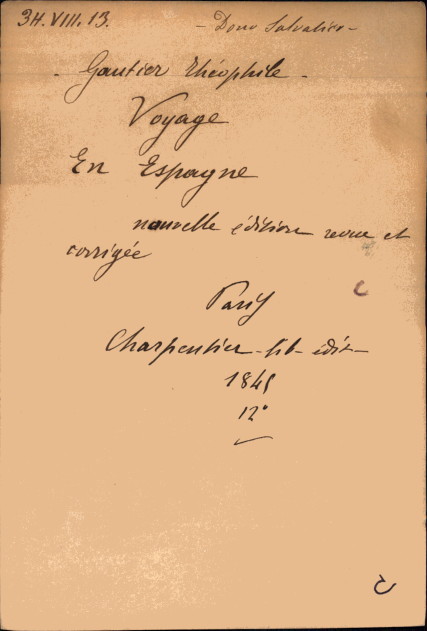 34.VIII.13. - Dono Salvatico -
- Gautier Théophile -
Voyage
En Espagne
nouvelle édition revue et
corrigée
Paris
C
Charpentier - lib - édit -
1845
12°
C